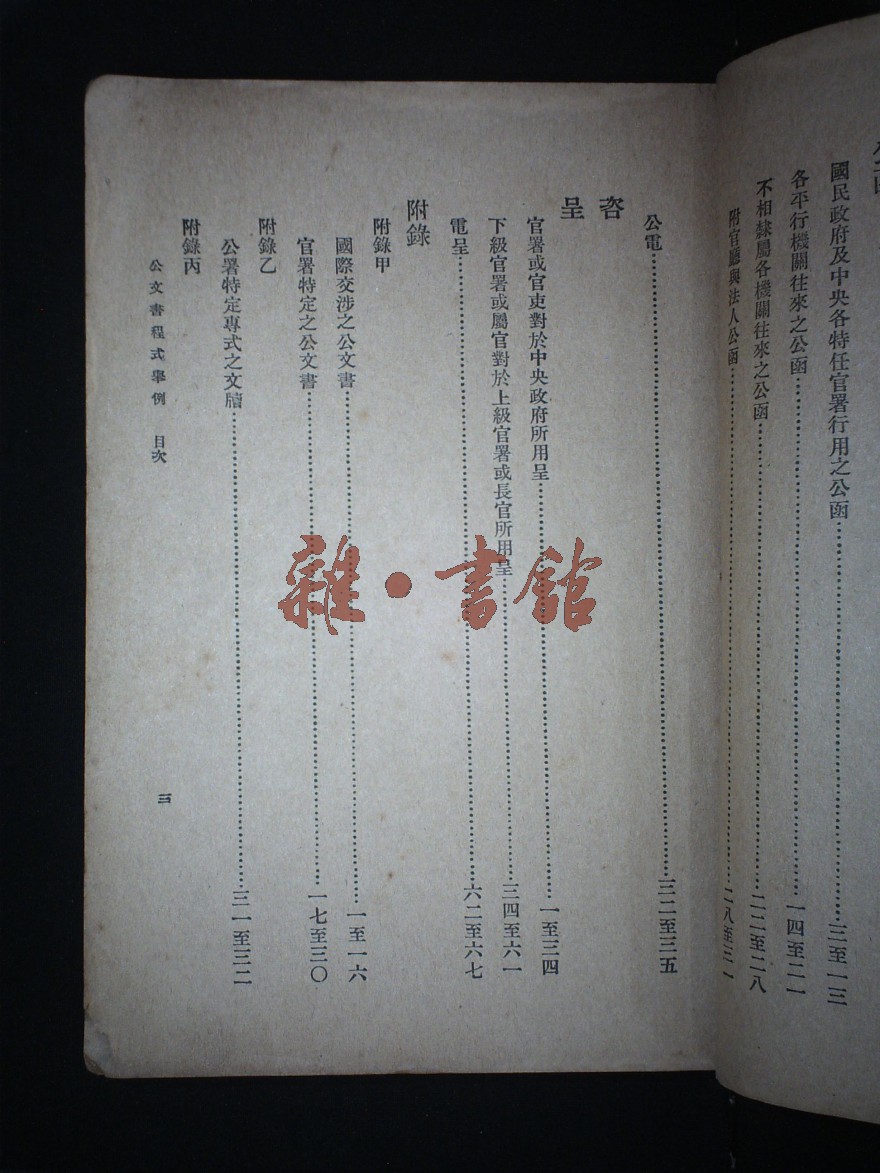 國民政府及中央各特任官署行用之公函……三至一三
各平行機關往來之公函……一四至二一
不相隸屬各機關往來之公函……二二至二八
附官廳與法人公函……二八至三一
公電……三二至三五
咨
呈
官署或官吏對於中央政府所用呈……一至三四
下級官署或屬官對於上級官署或長官所用呈……三四至六一
電呈……六二至六七
附錄
附錄甲
國際交涉之公文書……一至一六
官署特定之公文書……一七至三〇
附錄乙
公署特定專式之文牘……三一至三二
附錄丙
公文書程式舉例 目次
三
雜·書館